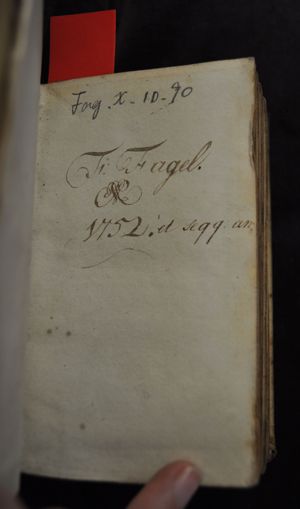 Fag. X. 10. 90
Fr: Fagel.
1752. et seqq. an